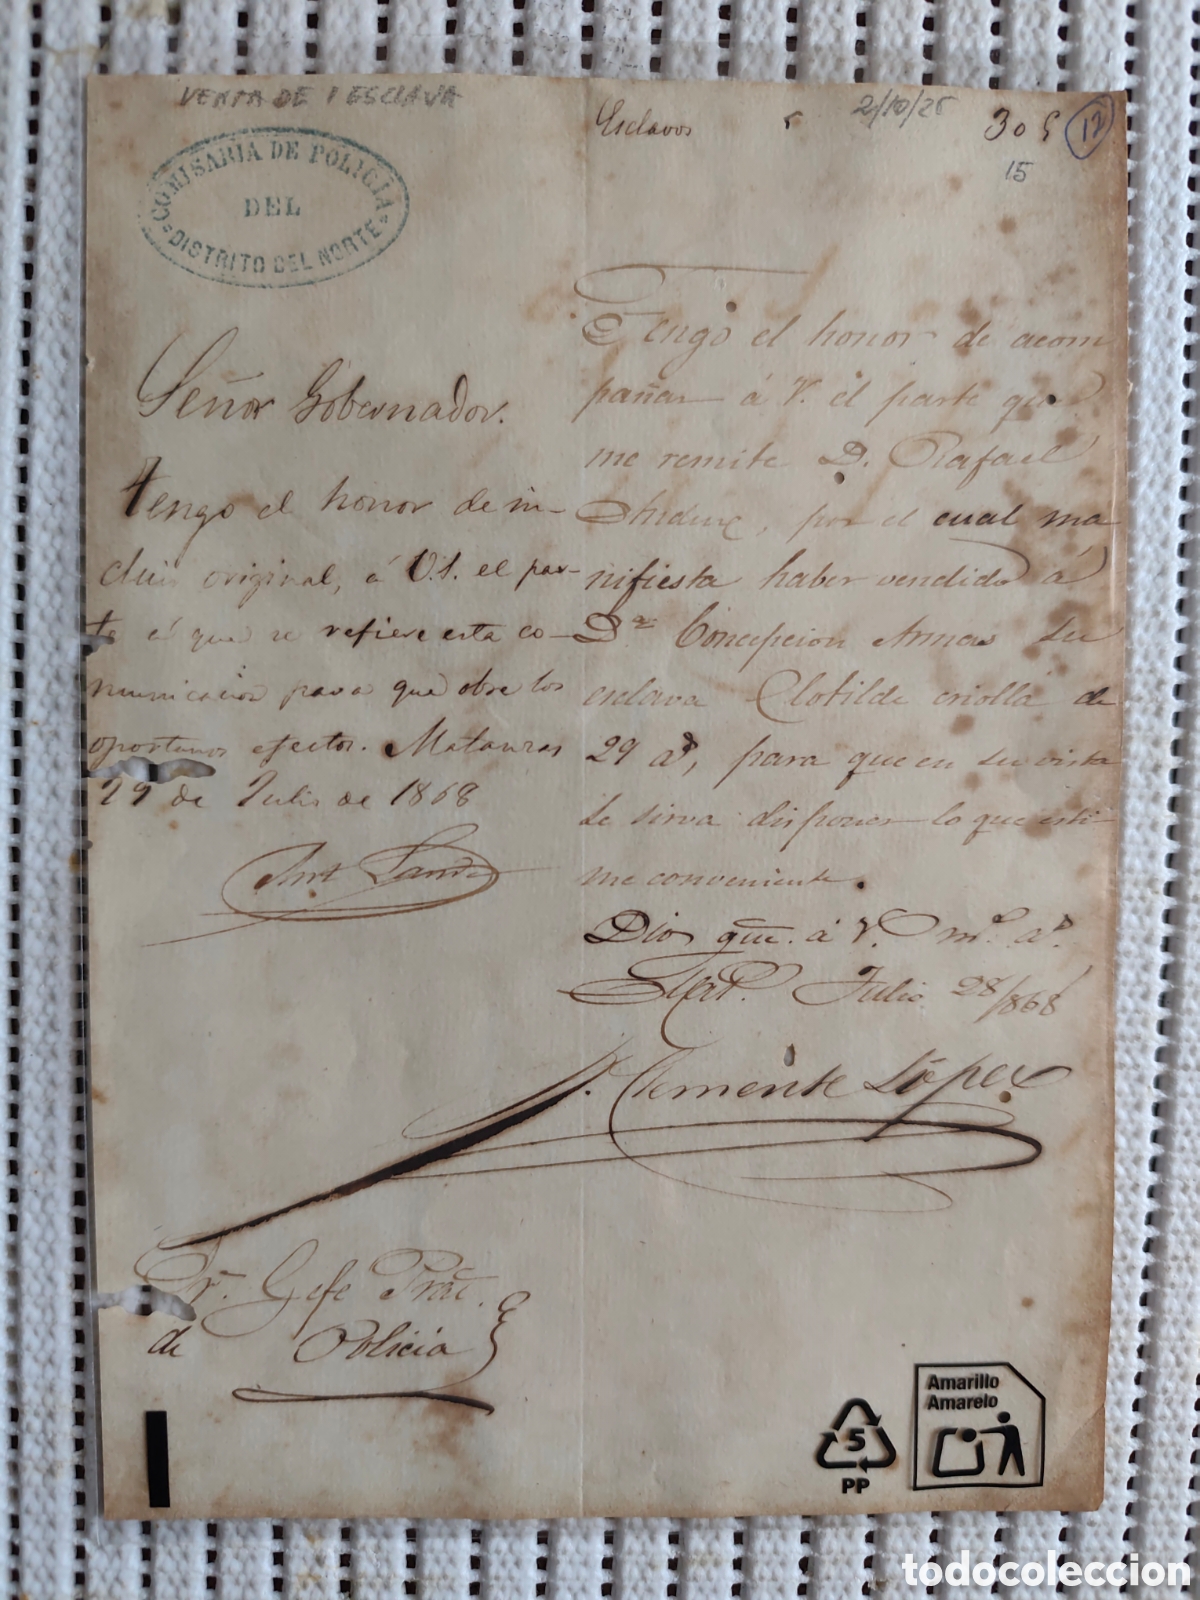 VENTA DE 1 ESCLAVA
Esclavos
2/10/25
305
12
15
COMISARIA DE POLICIA
DEL
DISTRITO DEL NORTE
Tengo el honor de acom
pañar á V. el parte que
me remite D. Rafael
por el cual ma
nifiesta haber vendido á
Dª Concepcion Armas su
esclava Clotilde criolla de
29 aˢ, para que en su vista
se sirva disponer lo que esti-
me conveniente.
Dios gue. á V. mˢ. aˢ.
Mat. Julio 28/868
Clemente López
Sr. Gefe Pral.
de Policia
Señor Gobernador.
Tengo el honor de in-
cluir original, á V.S. el par-
te á que se refiere esta co-
municacion para que obre los
oportunos efectos. Matanzas
29 de Julio de 1868
Amarillo
Amarelo
5
PP
todocoleccion